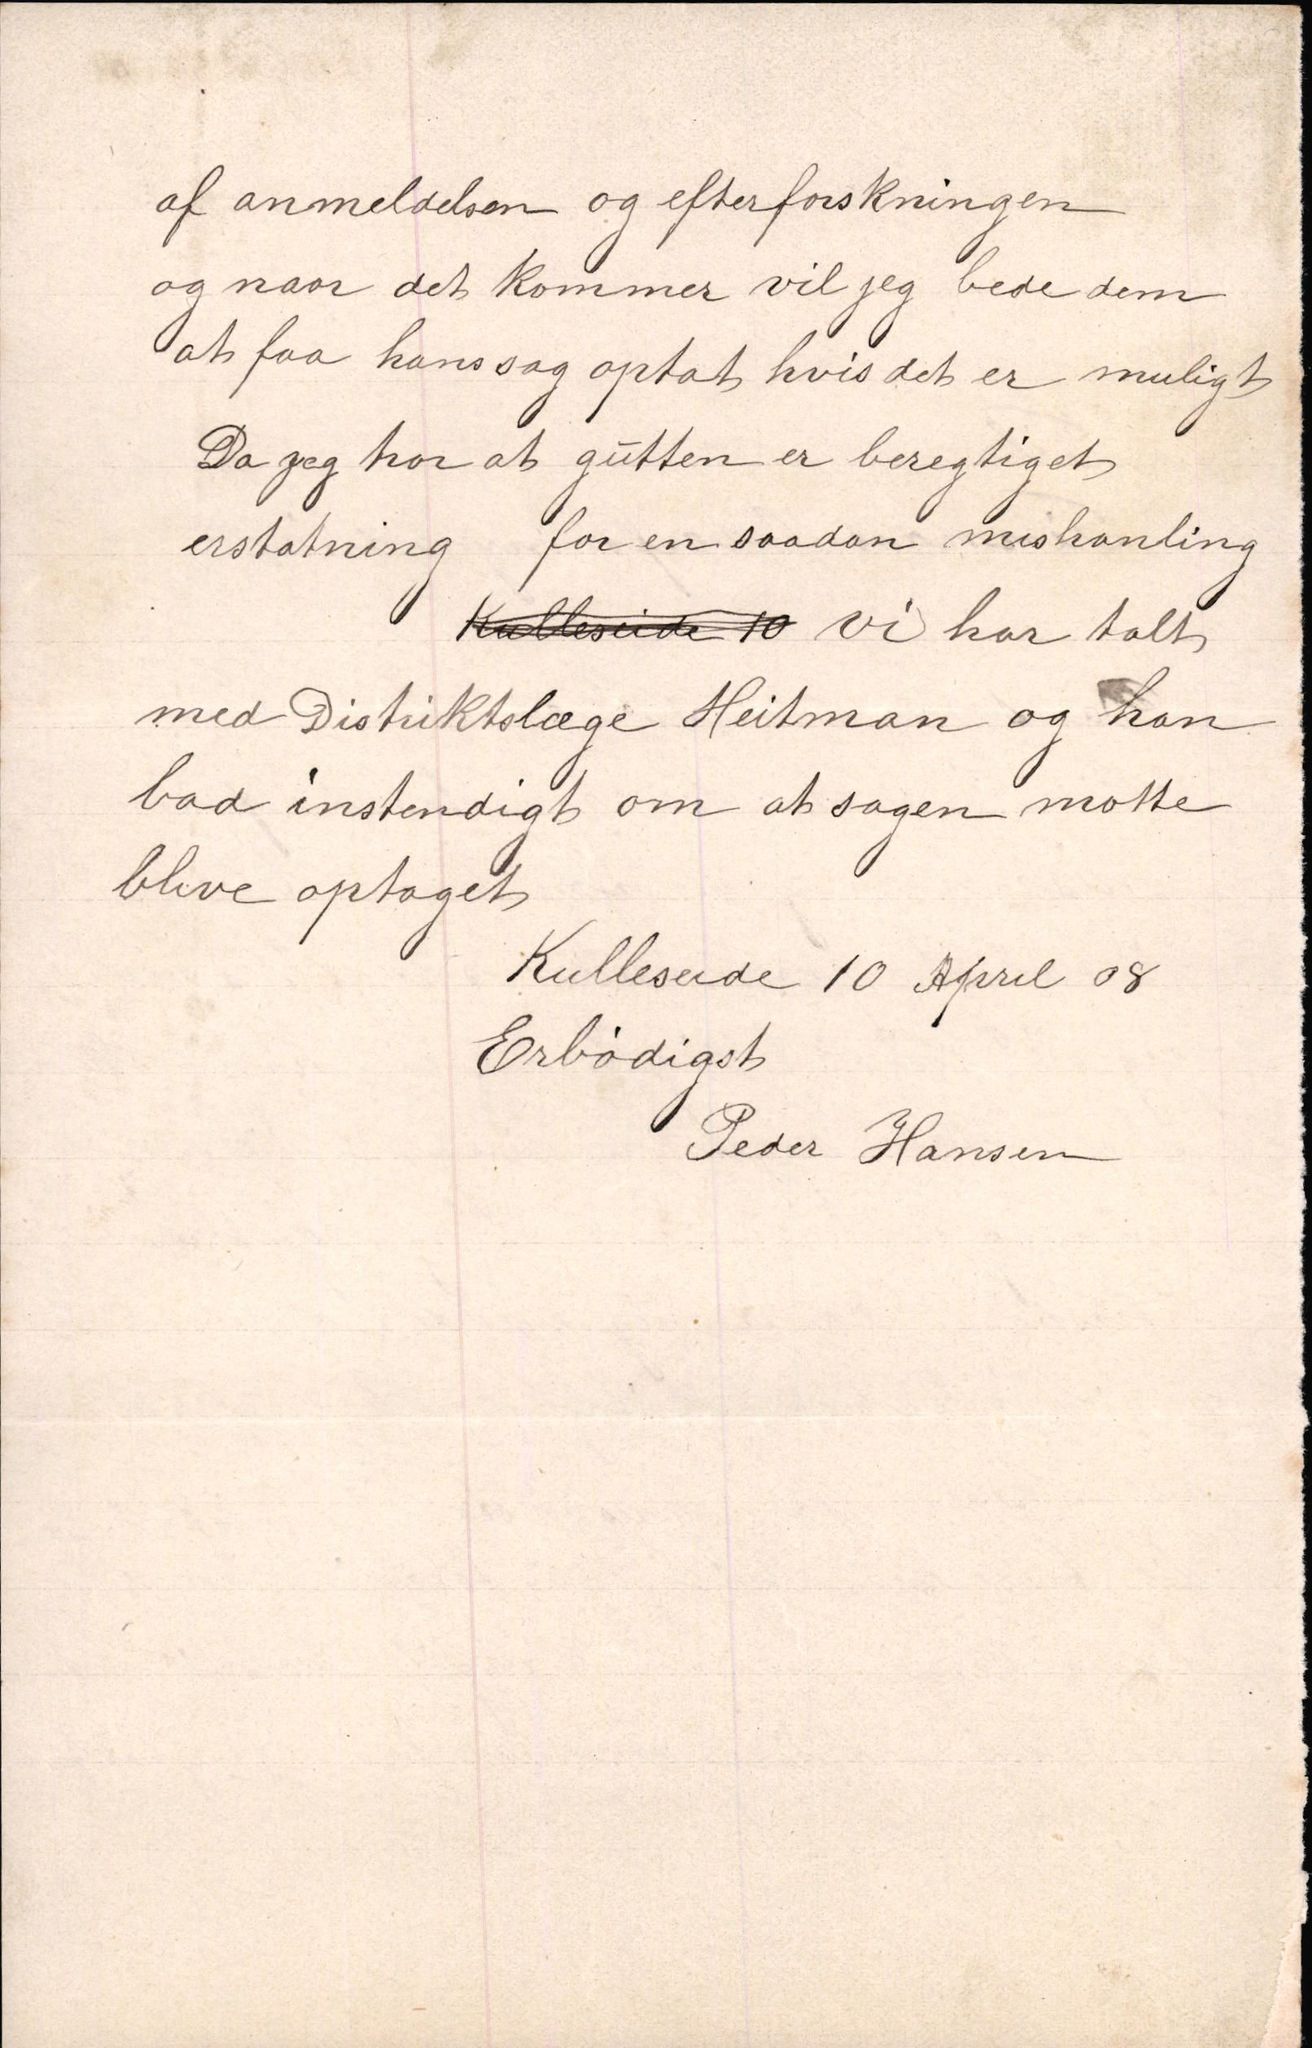 af anmeldelsen og efterforskningen
og naar det kommer vil jeg bede dem
at faa hans sag optat hvis det er muligt
Da jeg tror at gutten er beregtiget
erstatning for en saadan mishanling
Kulleseide 10 vi har talt
med Distriktslæge Heitman og han
bad instendigt om at sagen motte
blive optaget
Kulleseide 10 April 08
Erbødigst
Peder Hansen